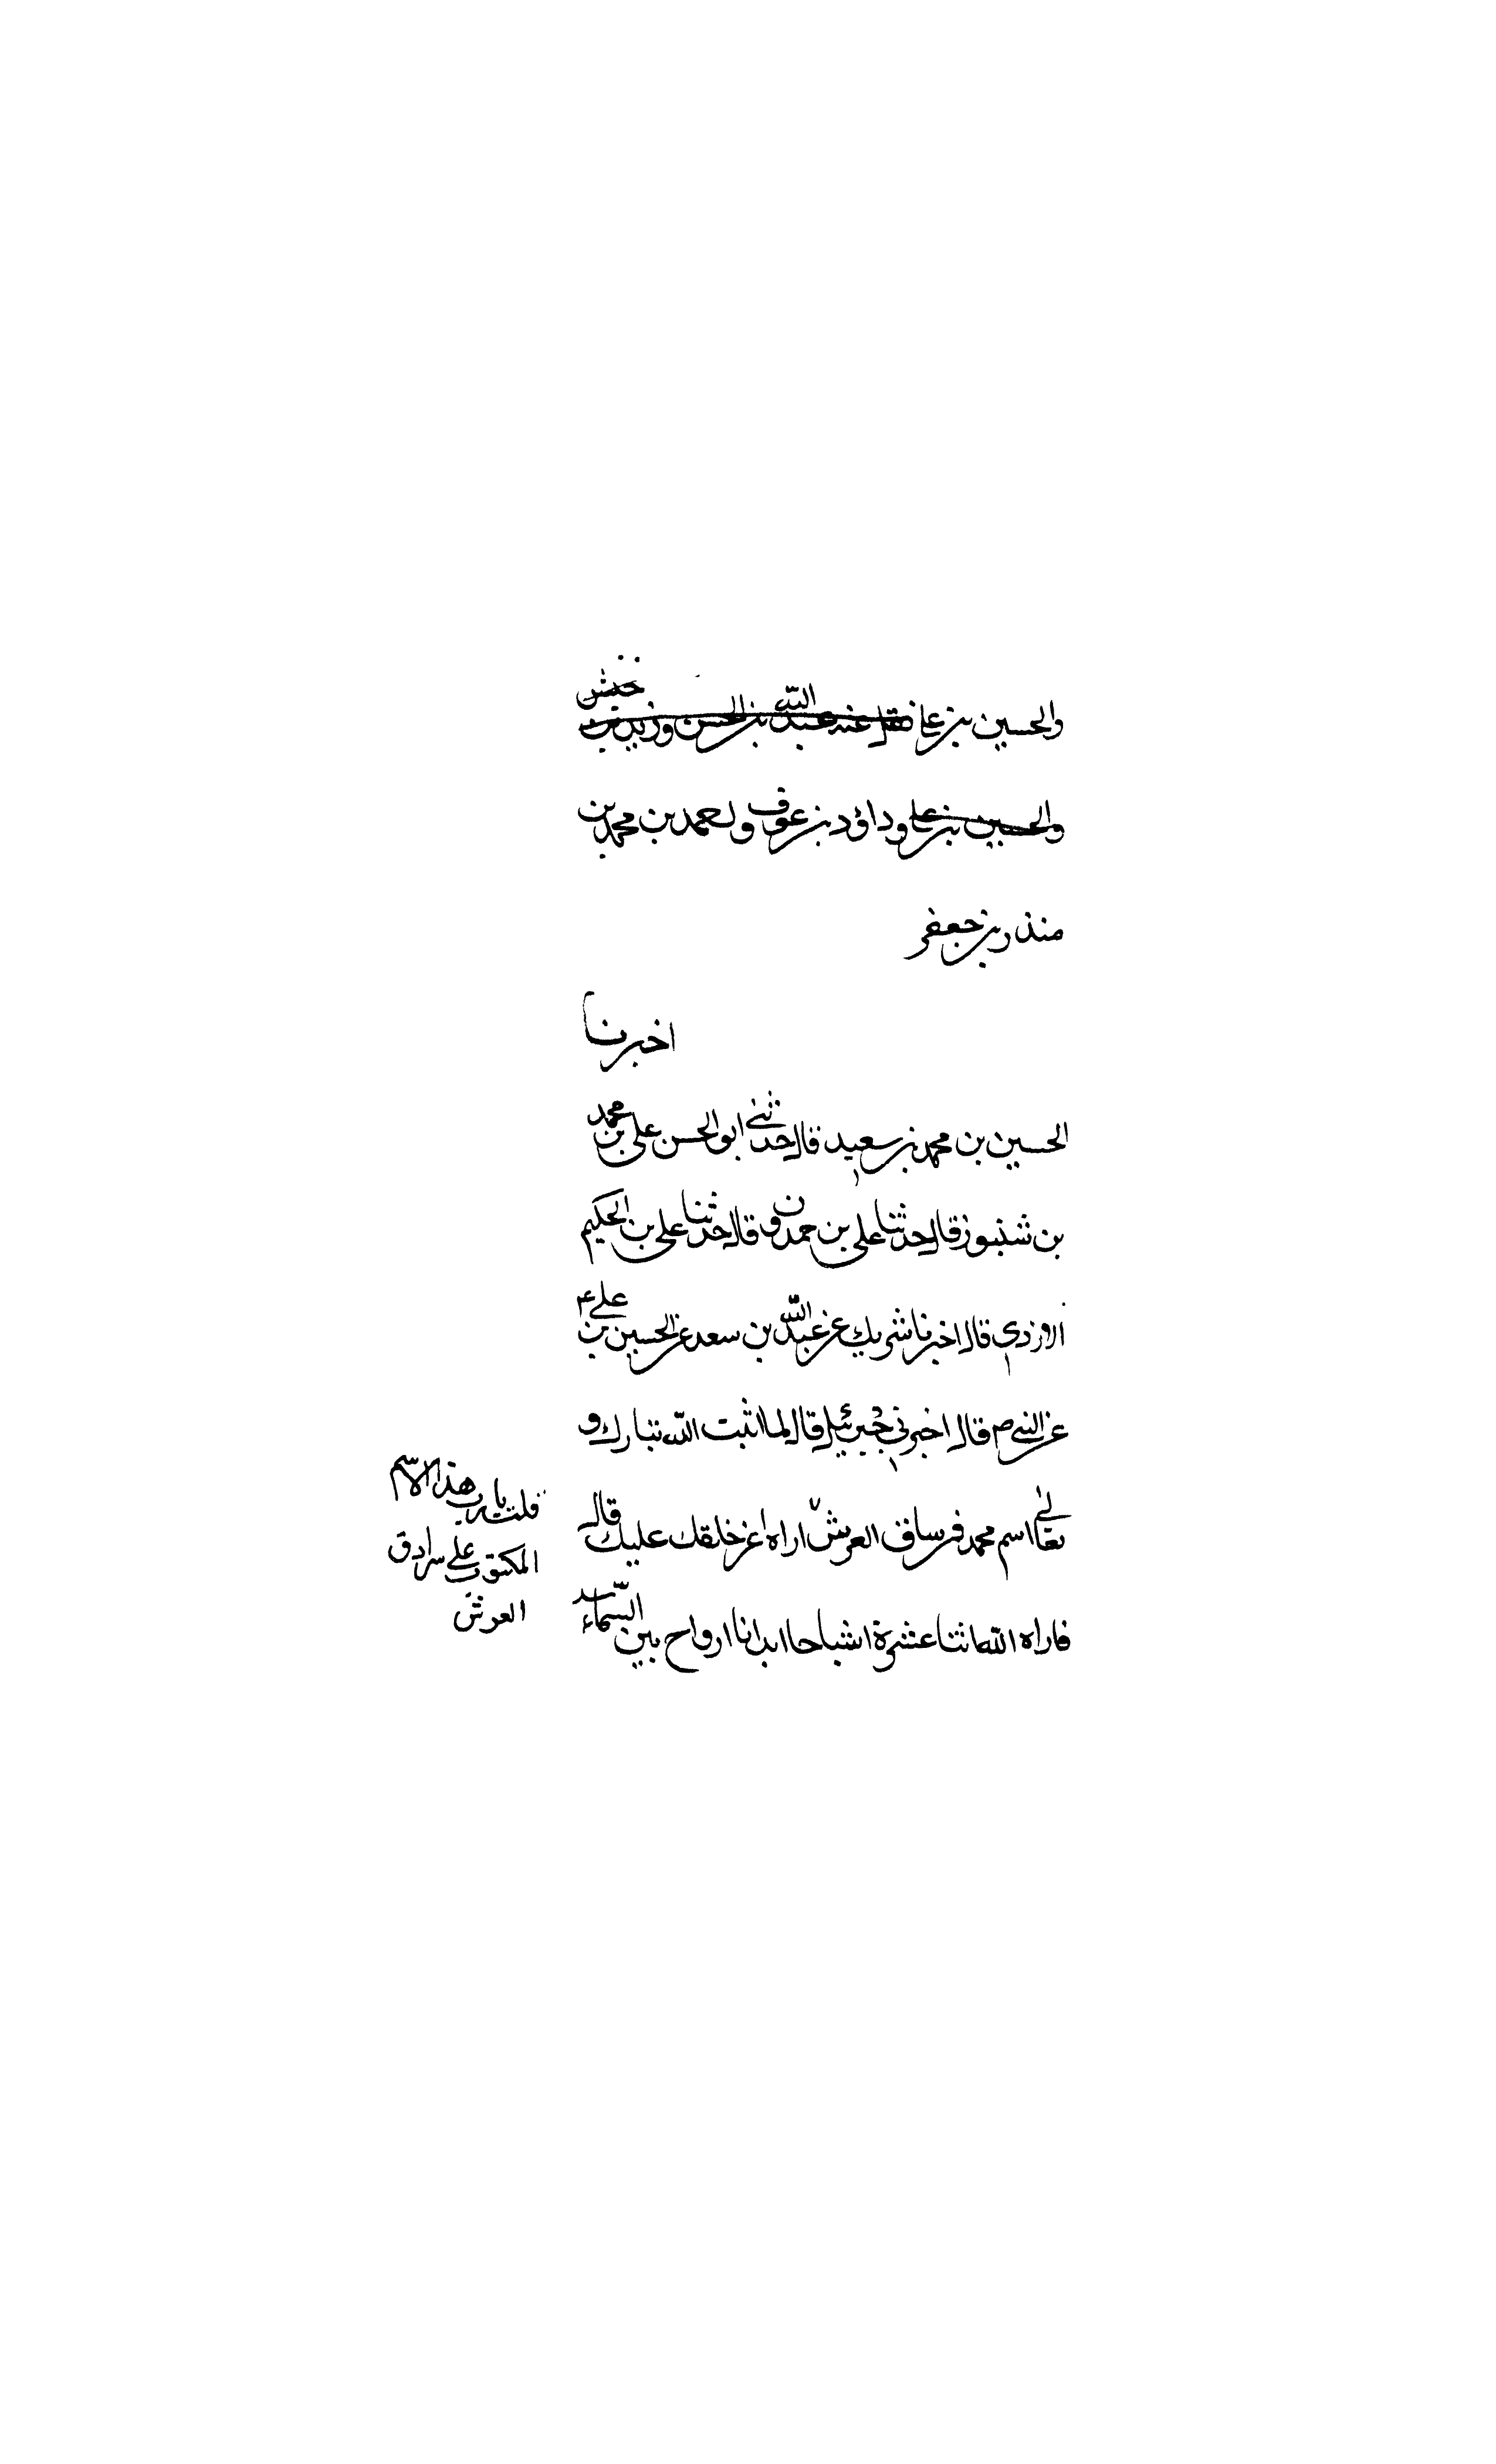 والحسين بن علي فقال عنه عبد الله بن الحسن وزيد بن
والحسين بن علي وداؤد بن عوف و محمد بن محمد بن
منذر بن جعفر
اخبرنا
الحسين بن محمد بن سعيد قال حدثني ابو الحسن علي بن محمد
بن شنبوز قال حدثنا علي بن حمدون قال حدثنا علي بن الحكيم
اروزدي قال اخبرنا شريك عن عبد الله بن سعد عن الحسين بن علي ع
عن النبي ص قال اخبرني جبرئيل قال لما اثبت الله تبارك و
تعالى اسم محمد في ساق العرش اراه اعز خلقك عليك قال
فاراه الله اثنا عشرة اشباحا ابدانا ارواح بين السماء
قلت يا رب هذا الاسم
المكتوب علي سرادق
العرش